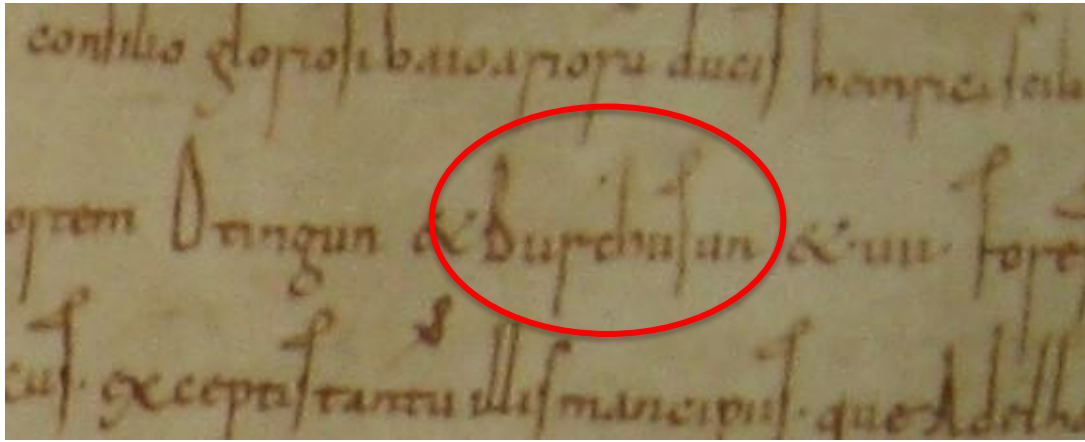 consilio gloriosi baioarioru ducis heinrici
ortem Otingun & Burchusun & uii forte
cus exceptis tantu illis mancipiis que Adelh